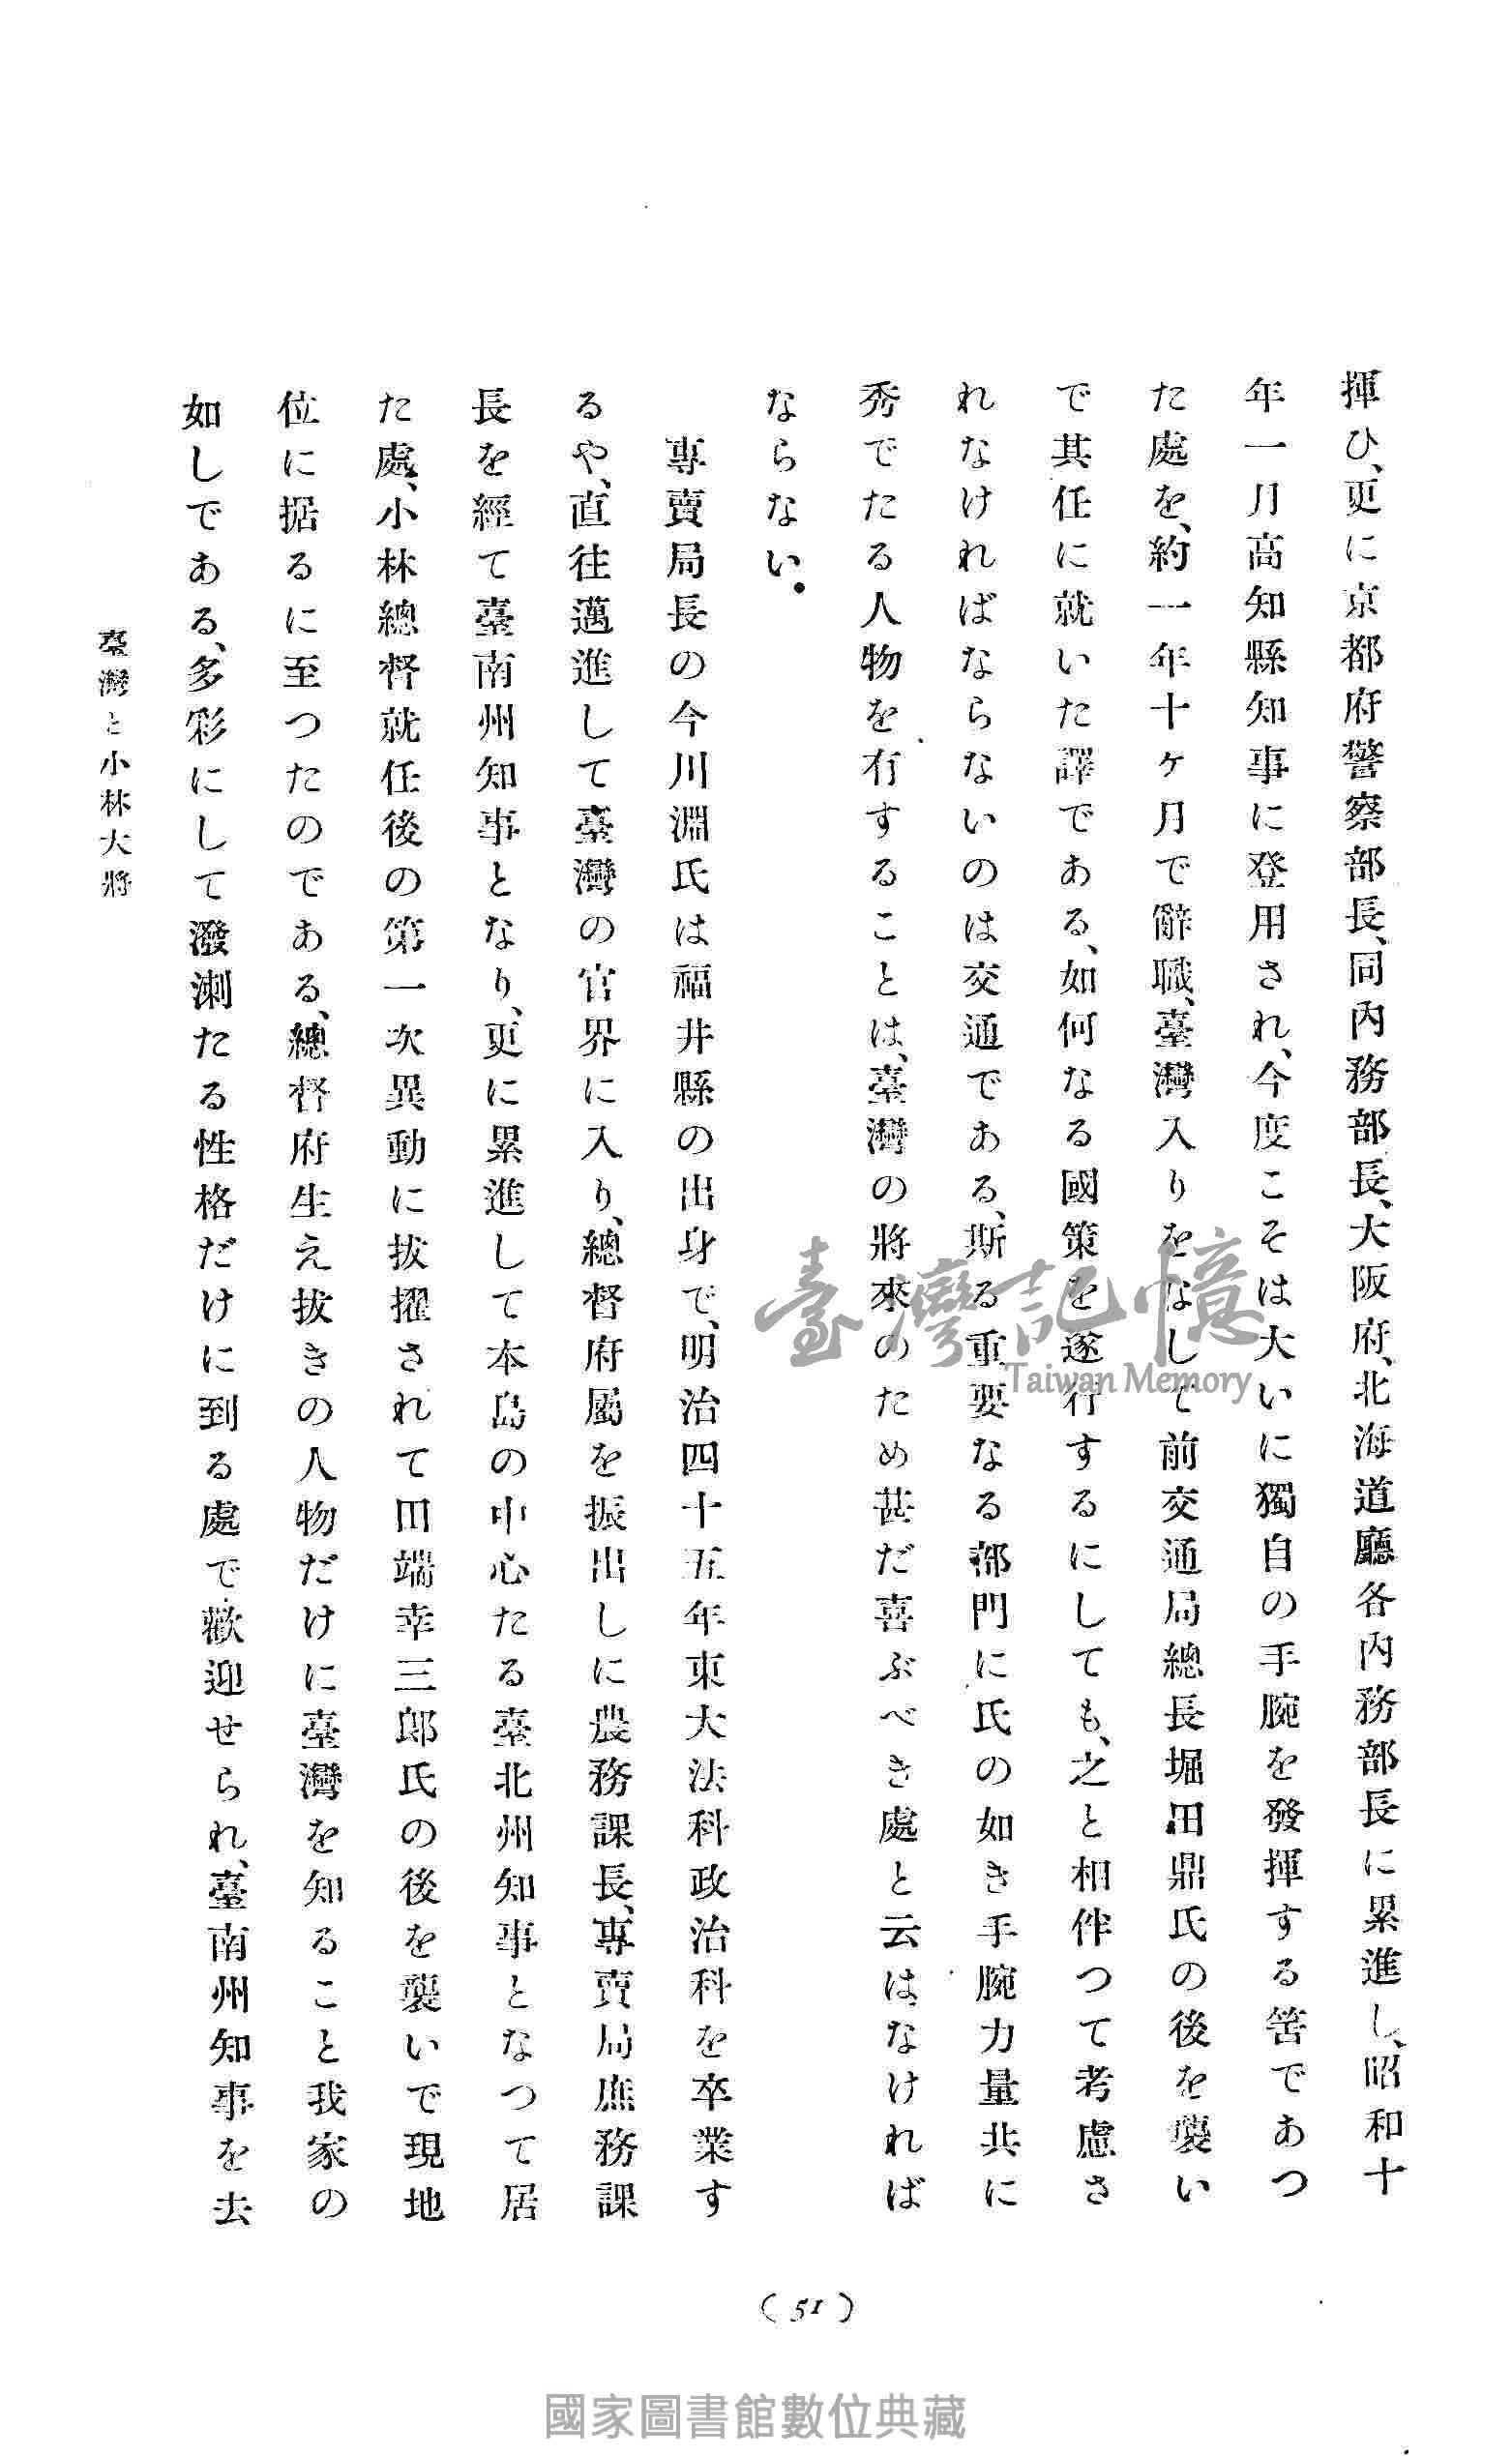 揮ひ、更に京都府警察部長、同內務部長、大阪府、北海道廳各內務部長に累進し、昭和十
年一月高知縣知事に登用され、今度こそは大いに獨自の手腕を發揮する筈であつ
た處を、約一年十ヶ月で辭職、臺灣入りをなして前交通局總長堀田鼎氏の後を襲い
で其任に就いた譯である、如何なる國策を遂行するにしても、之と相伴つて考慮さ
れなければならないのは交通である、斯る重要なる部門に氏の如き手腕力量共に
秀でたる人物を有することは、臺灣の將來のため甚だ喜ぶべき處と云はなければ
ならない。
專賣局長の今川淵氏は福井縣の出身で、明治四十五年東大法科政治科を卒業す
るや、直往邁進して臺灣の官界に入り、總督府屬を振出しに農務課長、專賣局庶務課
長を經て臺南州知事となり、更に累進して本島の中心たる臺北州知事となつて居
た處、小林總督就任後の第一次異動に拔擢されて田端幸三郎氏の後を襲いで現地
位に据るに至つたのである、總督府生え拔きの人物だけに臺灣を知ること我家の
如しである、多彩にして潑溂たる性格だけに到る處で歡迎せられ、臺南州知事を去
臺灣と小林大將
(51)
臺灣記憶
Taiwan Memory
國家圖書館數位典藏